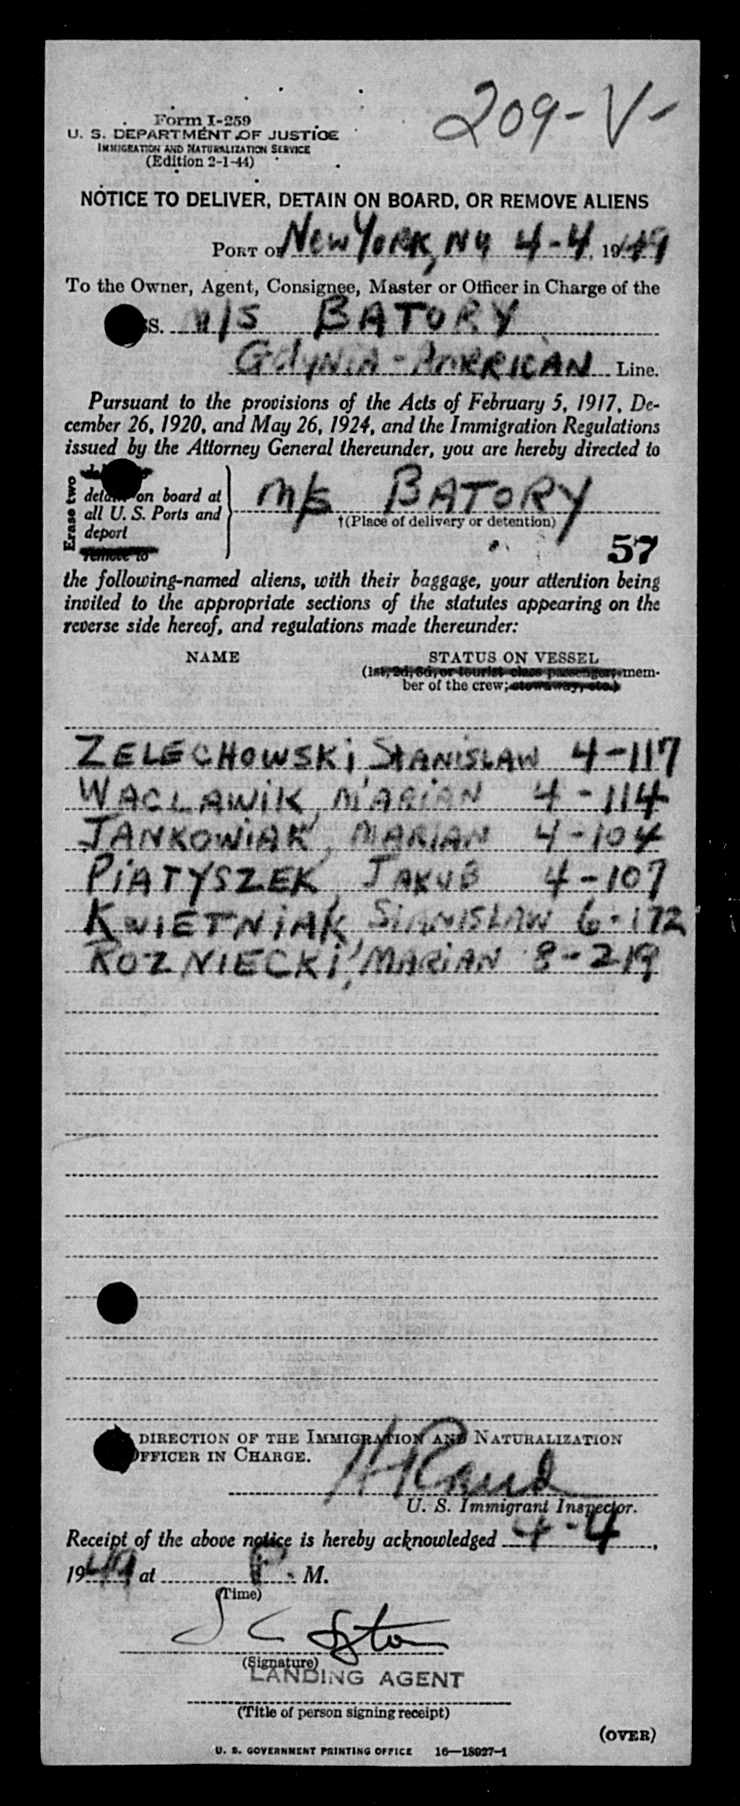 209-V-
Form I-259
U. S. DEPARTMENT OF JUSTICE
IMMIGRATION AND NATURALIZATION SERVICE
(Edition 2-1-44)
NOTICE TO DELIVER, DETAIN ON BOARD, OR REMOVE ALIENS
PORT OF New York, NY 4-4, 1949
To the Owner, Agent, Consignee, Master or Officer in Charge of the
SS. M/S BATORY
GDYNIA-AMERICAN Line.
Pursuant to the provisions of the Acts of February 5, 1917, De-
cember 26, 1920, and May 26, 1924, and the Immigration Regulations
issued by the Attorney General thereunder, you are hereby directed to
Erase two
detain on board at
all U. S. Ports and
deport
remove to
M/s BATORY
†(Place of delivery or detention)
57
the following-named aliens, with their baggage, your attention being
invited to the appropriate sections of the statutes appearing on the
reverse side hereof, and regulations made thereunder:
NAME STATUS ON VESSEL
(1st, 2d, 3d, or tourist class passenger, mem-
ber of the crew; stowaway, etc.)
ZELECHOWSKI STANISLAW 4-117
WACLAWIK, MARIAN 4-114
JANKOWIAK, MARIAN 4-104
PIATYSZEK, JAKUB 4-107
KWIETNIAK, STANISLAW 6-172
ROZNIECKI, MARIAN 8-219
DIRECTION OF THE IMMIGRATION AND NATURALIZATION
OFFICER IN CHARGE.
U. S. Immigrant Inspector.
Receipt of the above notice is hereby acknowledged 4-4,
1949 at P. M.
(Time)
(Signature)
LANDING AGENT
(Title of person signing receipt)
(OVER)
U. S. GOVERNMENT PRINTING OFFICE 16—18027-1